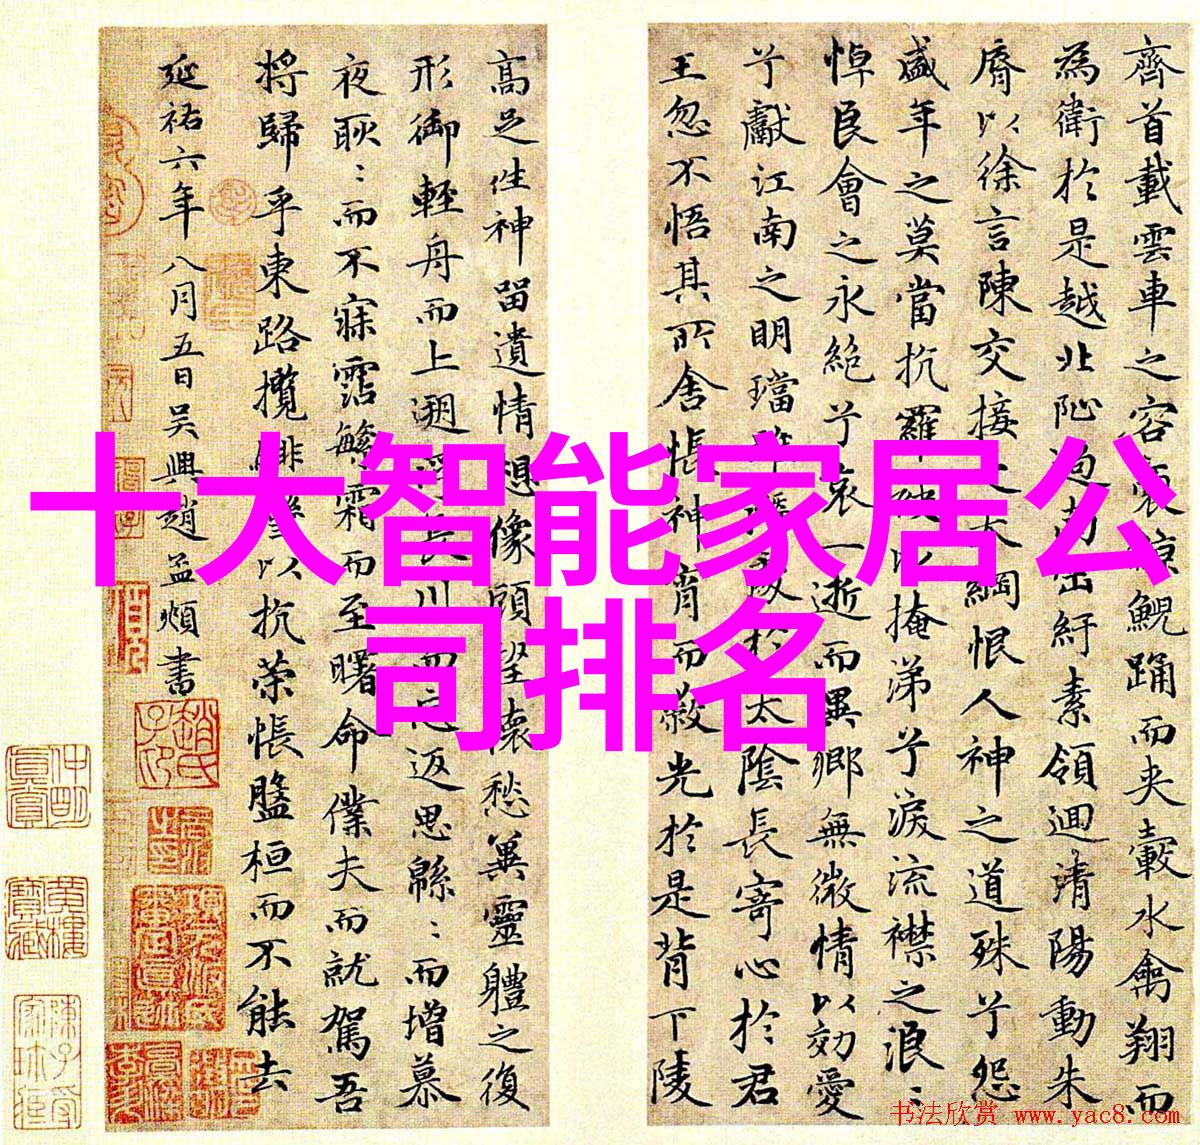 齊首載雲車之容裔鯨鯢踊而夾轂水禽翔而
為衛於是越北沚過南岡紆素領迴清陽動朱
脣以徐言陳交接之大綱恨人神之道殊兮怨
盛年之莫當抗羅袂以掩涕兮淚流襟之浪〻
悼良會之永絕兮哀一逝而異鄉無微情以効愛
兮獻江南之明璫雖潛處於太陰長寄心於君
王忽不悟其所舍悵神宵而蔽光於是背下陵
高足往神留遺情想像顧望懷愁冀靈體之復
形御輕舟而上遡浮長川而忘返思綿〻而增慕
夜耿〻而不寐霑繁霜而至曙命僕夫而就駕吾
將歸乎東路攬騑轡以抗策悵盤桓而不能去
延祐六年八月五日吳興趙孟頫書
十大智能家居公
司排名
书法欣赏 www.yac8.com